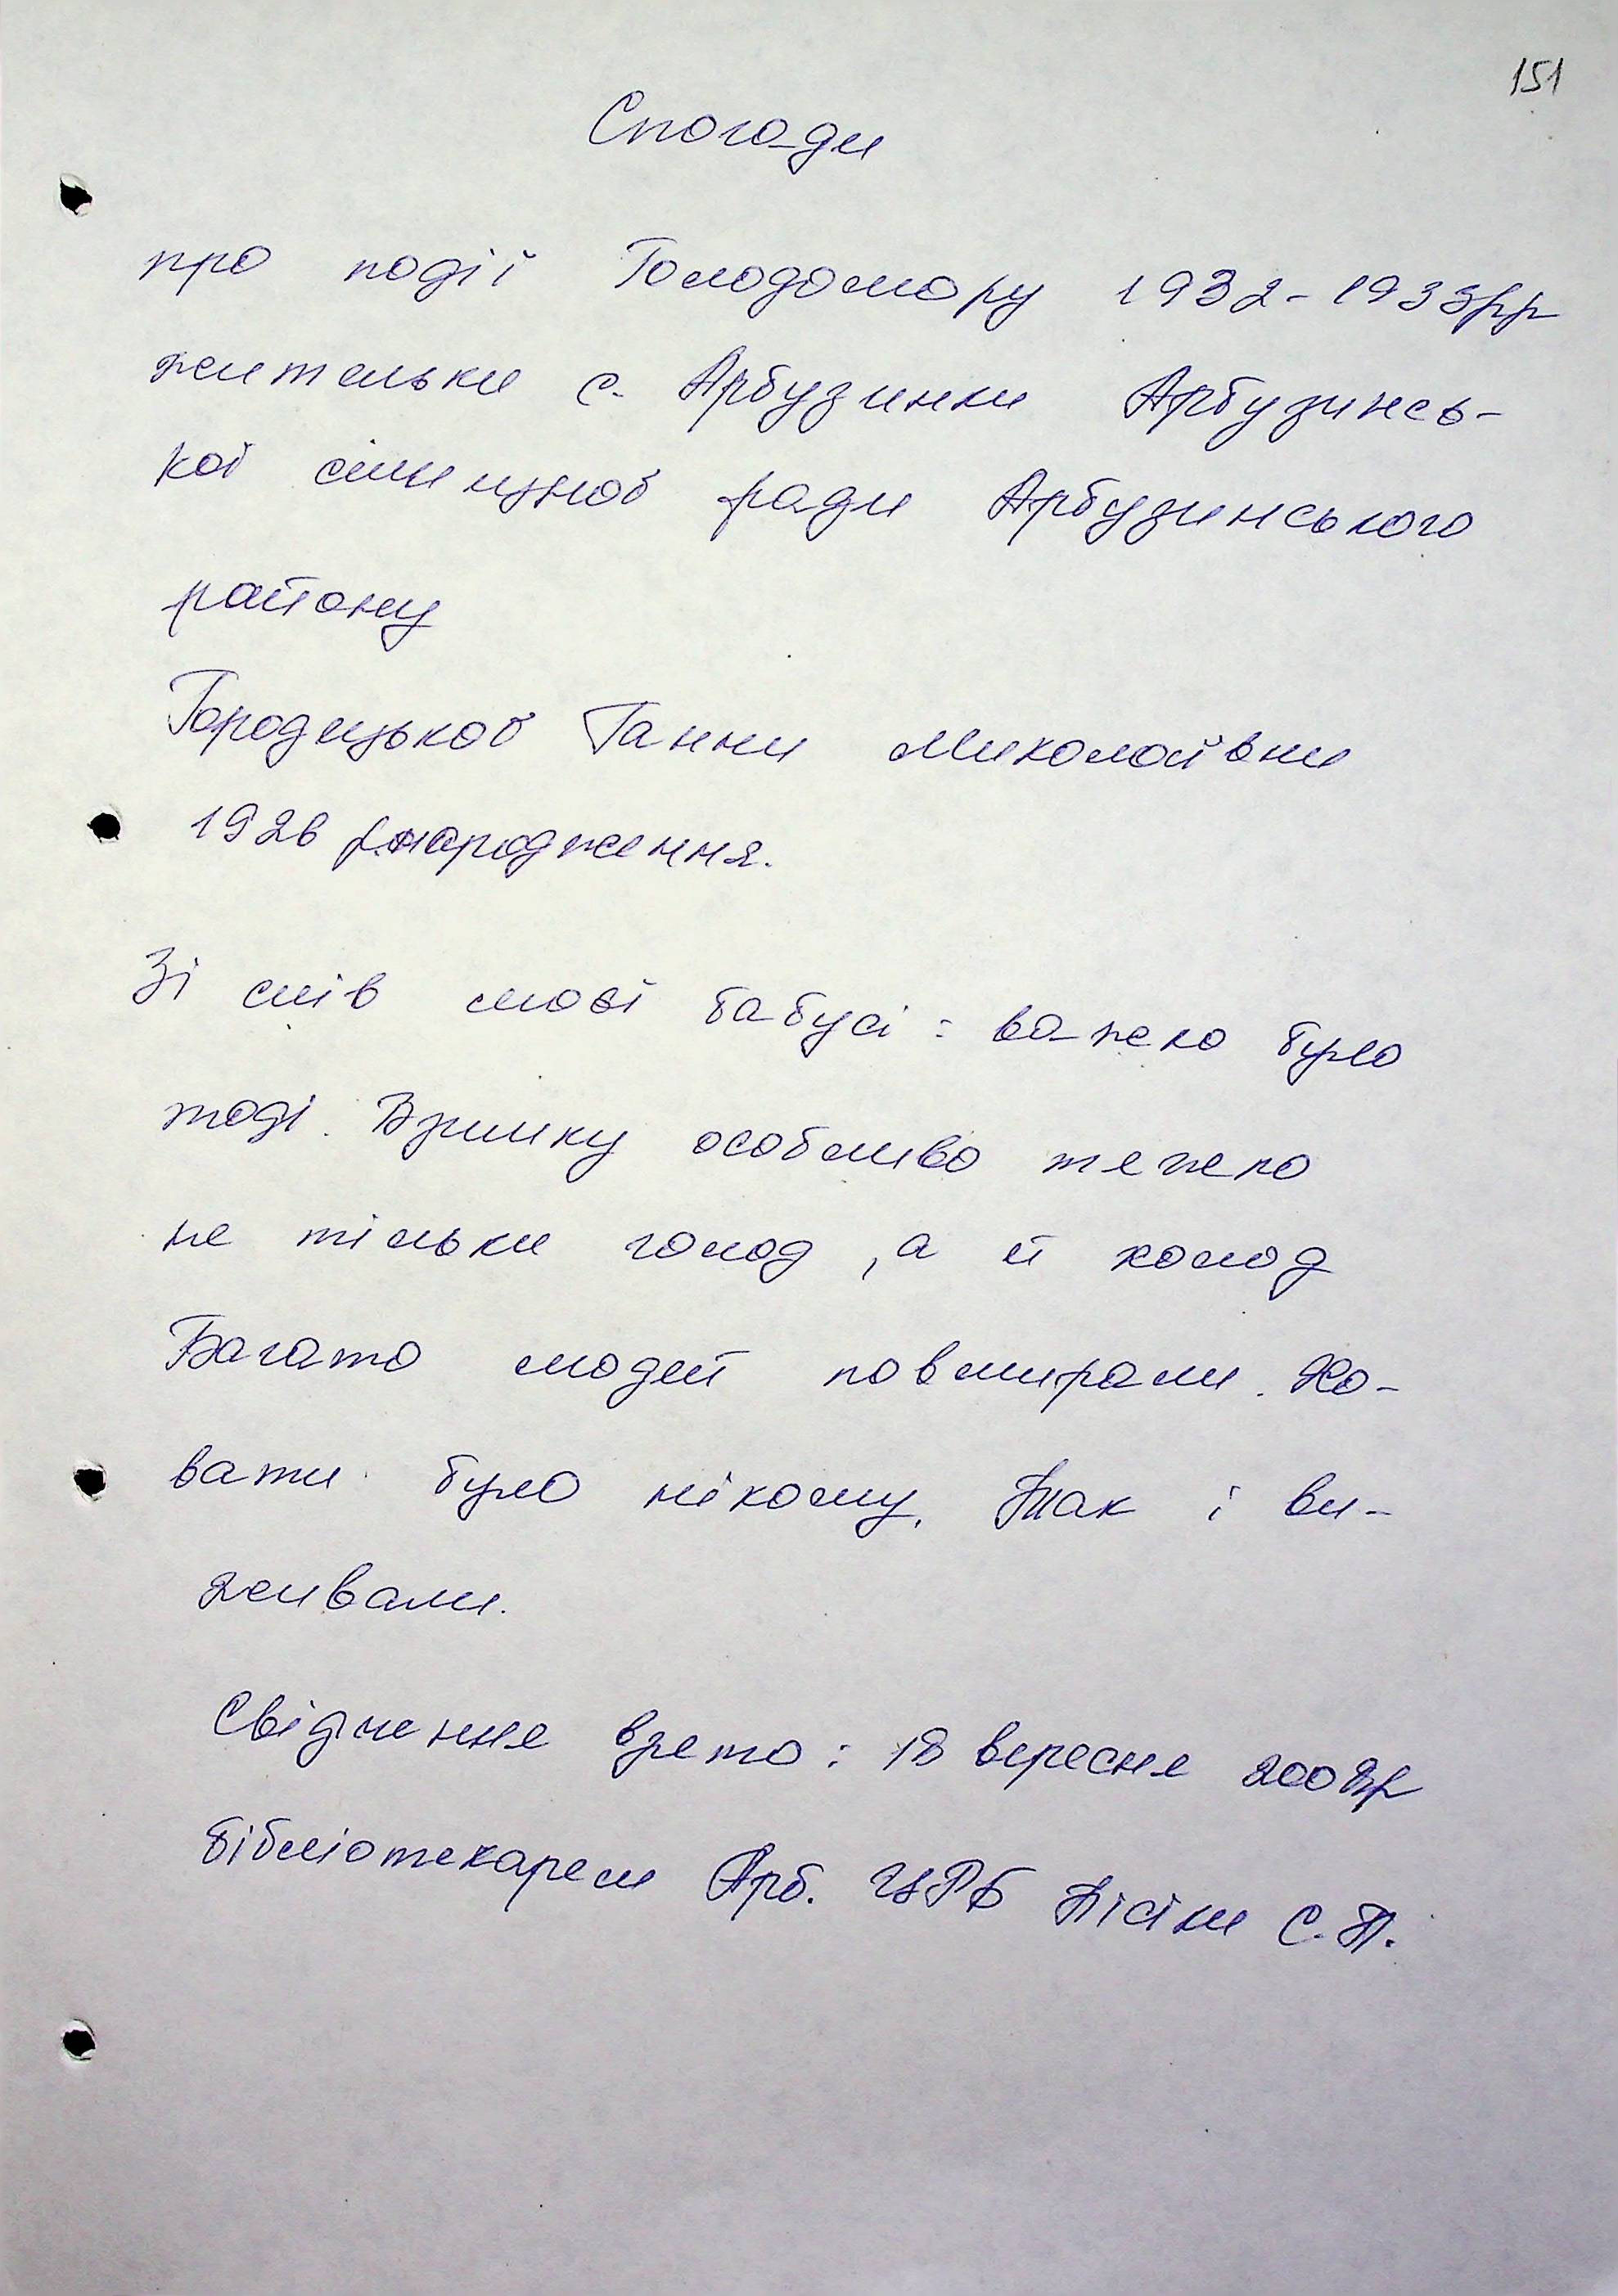 151
Спогади
про події Голодомору 1932-1933рр
жительки с. Арбузинки Арбузинсь-
кої селищної ради Арбузинського
району
Городецької Ганни Миколаївни
1926 р. народження.
Зі слів моєї бабусі: важко було
тоді. Взимку особливо тяжко
не тільки голод, а й холод
Багато людей повмирали. Хо-
вати було нікому. Так і ви-
живали.
Свідчення взято: 18 вересня 2008р
бібліотекарем Арб. ЦРБ С.П.